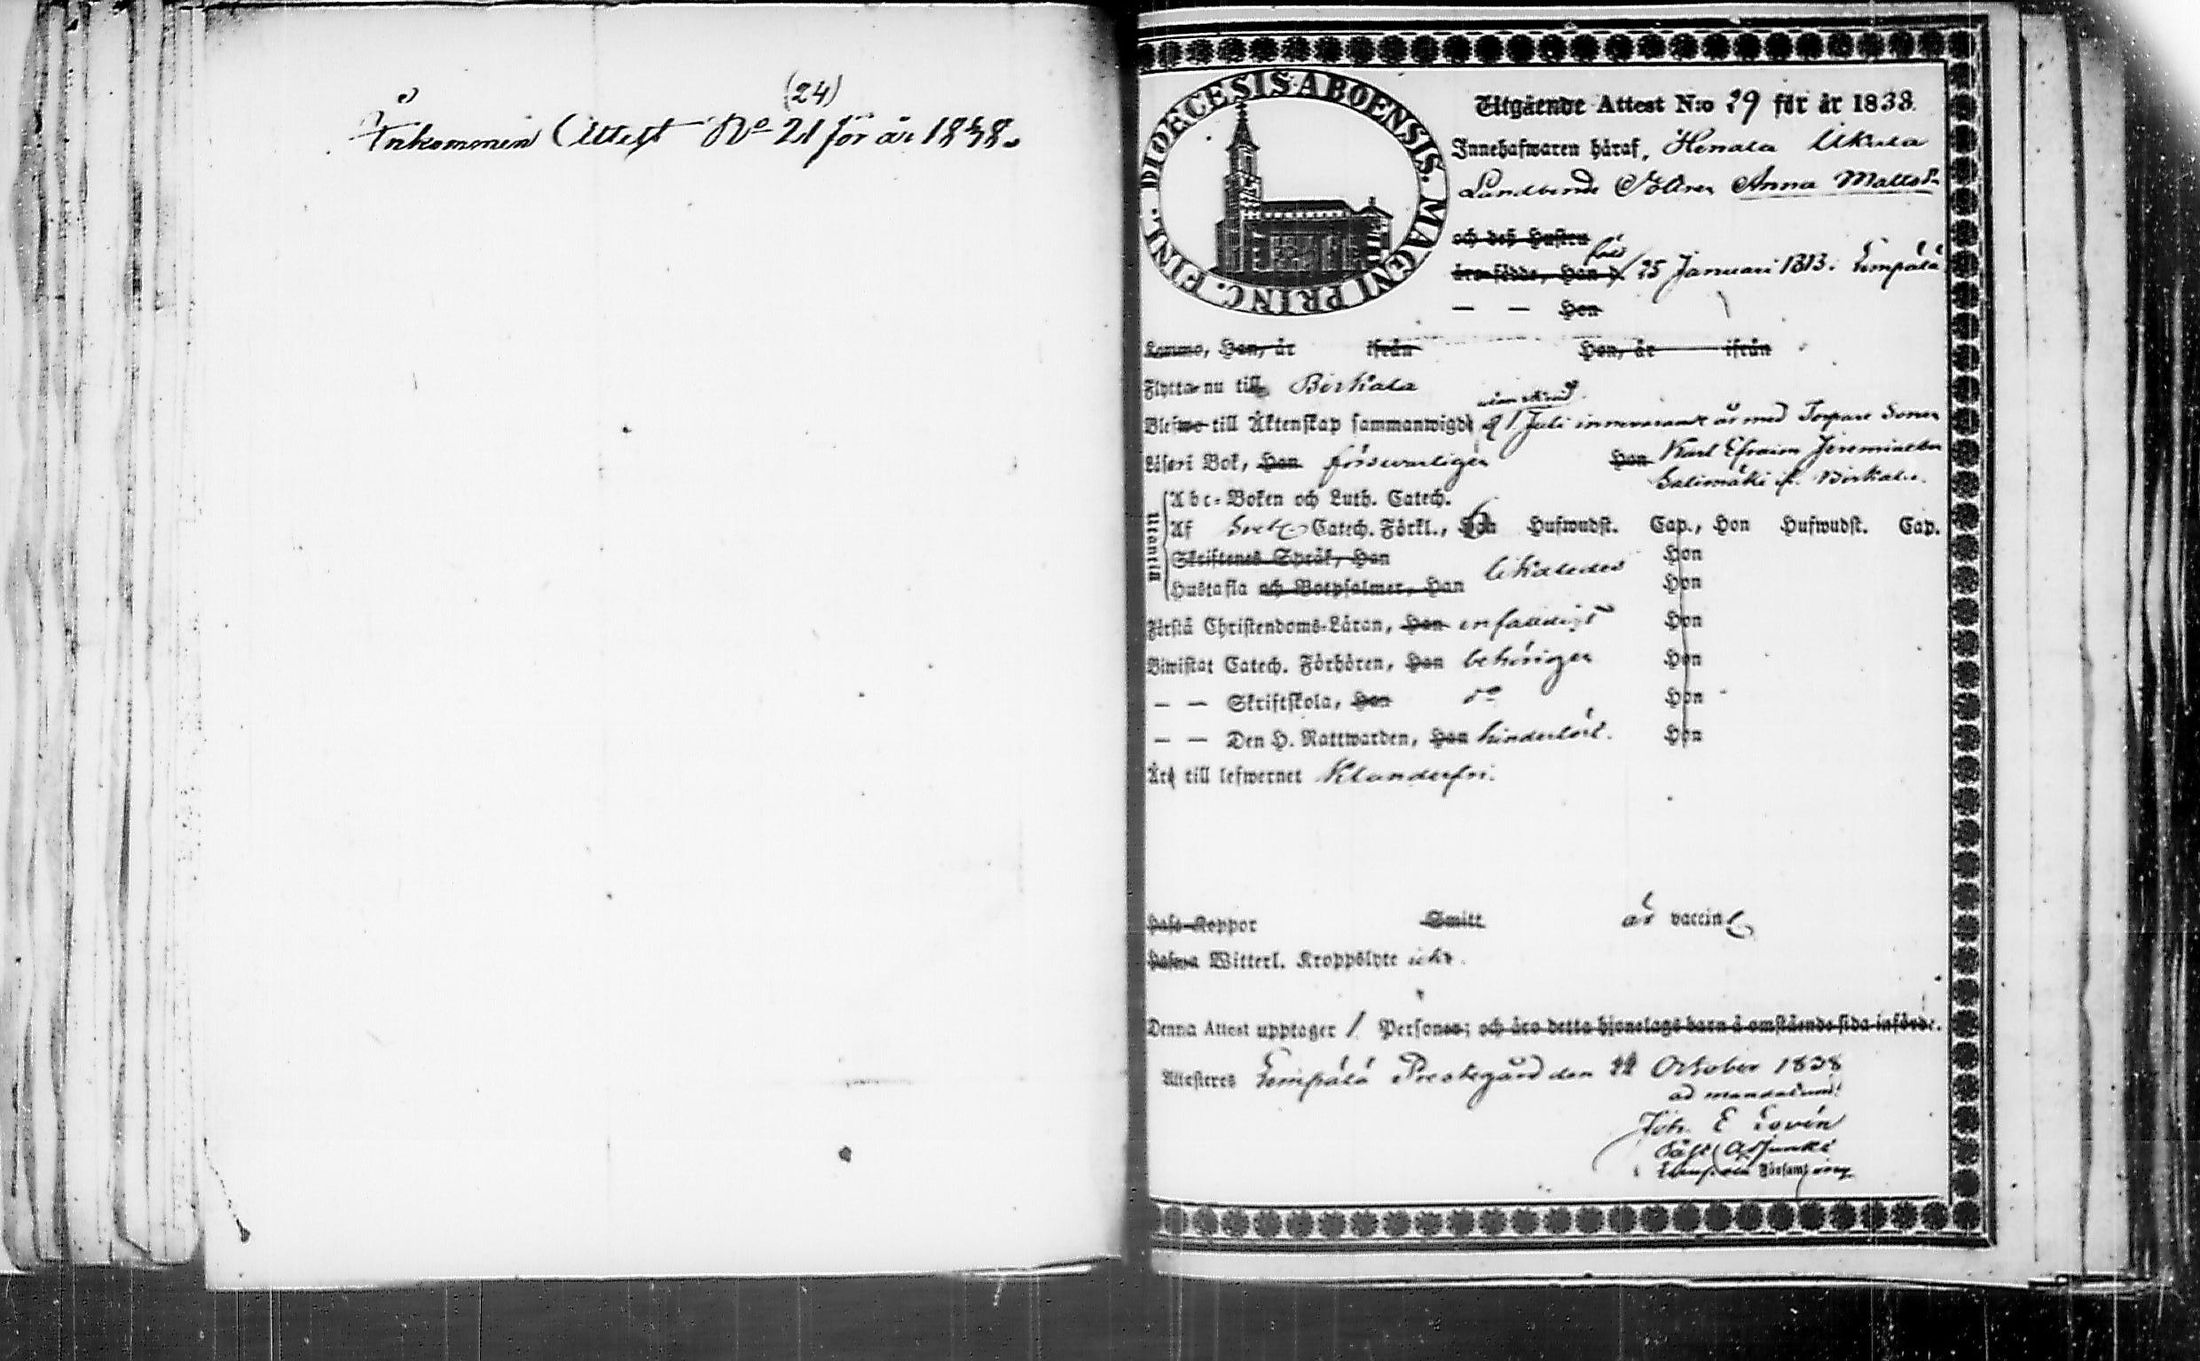 (24)
Inkommen Attest No 21 för år 1838.
DIOECESIS ABOENSIS. MAGNI PRINC. FINL.
Utgående Attest N:o 29 för år 1838.
Innehafwaren häraf, Henala Ukula
Landbonde Dottren Anna Matts Dr
och deß Hustru
äro födde, Han d. född 25 Januari 1813. Lempälä
— — Hon
Komne, Han, år ifrån Hon, år ifrån
Flytta nu till Birkala
Blefwo till Äktenskap sammanwigde d 1 Juli innevarande år med Torpare Sonen
Karl Efraim Jeremiasson
Läser i Bok, Han försvarligen Hon
Salimäki fr. Birkala.
Utantill
Abc-Boken och Luth. Catech.
Af Catech. Förkl., Han 6 Hufwudst. Cap., Hon Hufwudst. Cap.
Skriftenes Språk, Han likaledes Hon
Hustafla och Botpsalmer, Han Hon
Förstå Christendoms-Läran, Han enfaldigt Hon
Biwistat Catech. Förhören, Han behörigen Hon
— — Skriftskola, Han do Hon
— — Den H. Nattwarden, Han hinderlöst. Hon
Äro till lefwernet Klanderfri.
Haft Koppor Smitt är vaccin
Hafwa Witterl. Kroppslyte icke.
Denna Attest upptager 1 Personer; och äro detta hjonelags barn å omstående sida införde.
Attesteras Lempälä Prestegård den 22 October 1838
ad mandatum
Joh. E Lovén
Adjunkt
Lempälä Församling